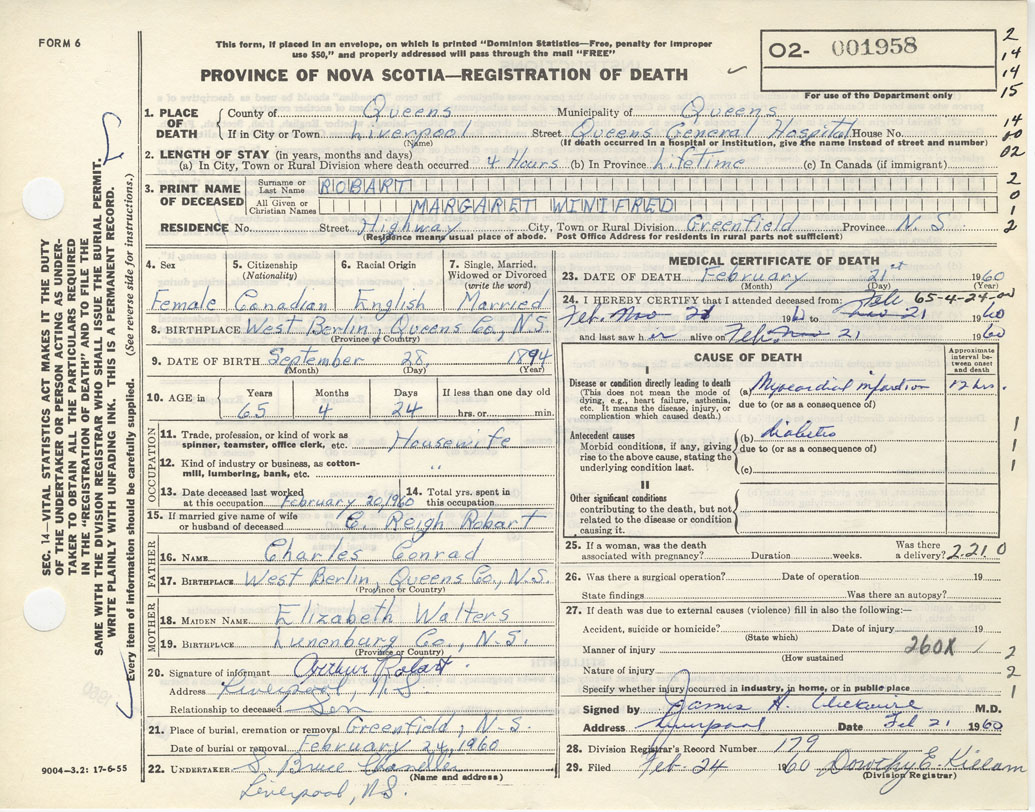 FORM 6
This form, if placed in an envelope, on which is printed "Dominion Statistics—Free, penalty for improper
use $50," and properly addressed will pass through the mail "FREE"
PROVINCE OF NOVA SCOTIA—REGISTRATION OF DEATH
O2- 001958
For use of the Department only
2
14
14
15
1. PLACE OF DEATH
County of Queens Municipality of Queens 14
If in City or Town Liverpool Street Queens General Hospital House No. 60
(Name) (If death occurred in a hospital or institution, give the name instead of street and number)
2. LENGTH OF STAY (in years, months and days) 02
(a) In City, Town or Rural Division where death occurred 4 Hours (b) In Province Lifetime (c) In Canada (if immigrant)
3. PRINT NAME OF DECEASED
Surname or Last Name ROBART 2
All Given or Christian Names MARGARET WINIFRED 0
1
RESIDENCE No. Street Highway City, Town or Rural Division Greenfield Province N.S 2
(Residence means usual place of abode. Post Office Address for residents in rural parts not sufficient)
4. Sex 5. Citizenship (Nationality) 6. Racial Origin 7. Single, Married, Widowed or Divorced (write the word)
Female Canadian English Married
8. BIRTHPLACE West Berlin, Queens Co., N.S.
(Province or Country)
9. DATE OF BIRTH September 28, 1894
(Month) (Day) (Year)
10. AGE in Years Months Days If less than one day old
65 4 24 hrs. or min.
OCCUPATION
11. Trade, profession, or kind of work as spinner, teamster, office clerk, etc. Housewife
12. Kind of industry or business, as cotton-mill, lumbering, bank, etc. "
13. Date deceased last worked at this occupation February 20, 1960
14. Total yrs. spent in this occupation
15. If married give name of wife or husband of deceased E. Reigh Robart
FATHER
16. NAME Charles Conrad
17. BIRTHPLACE West Berlin, Queens Co., N.S.
(Province or Country)
MOTHER
18. MAIDEN NAME Elizabeth Walters
19. BIRTHPLACE Lunenburg Co., N.S.
(Province or Country)
20. Signature of informant Arthur Robart.
Address Liverpool, N.S.
Relationship to deceased Son
21. Place of burial, cremation or removal Greenfield, N.S.
Date of burial or removal February 24, 1960
22. UNDERTAKER S. Bruce Chandler
(Name and address)
Liverpool, N.S.
MEDICAL CERTIFICATE OF DEATH
23. DATE OF DEATH February 21st 1960
(Month) (Day) (Year)
24. I HEREBY CERTIFY that I attended deceased from: 65-4-24-00
Feb. Nov 21 1960 to Nov 21 1960
and last saw her alive on Feb. Nov 21 1960
CAUSE OF DEATH
Approximate interval between onset and death
I
Disease or condition directly leading to death
(This does not mean the mode of dying, e.g., heart failure, asthenia, etc. It means the disease, injury, or complication which caused death.)
(a) Myocardial infarction 12 hrs.
due to (or as a consequence of)
Antecedent causes
Morbid conditions, if any, giving rise to the above cause, stating the underlying condition last.
(b) diabetes
due to (or as a consequence of)
(c)
1
1
1
II
Other significant conditions
contributing to the death, but not related to the disease or condition causing it.
25. If a woman, was the death associated with pregnancy? Duration weeks. Was there a delivery? 2-21 0
26. Was there a surgical operation? Date of operation 19
State findings Was there an autopsy?
27. If death was due to external causes (violence) fill in also the following:—
Accident, suicide or homicide? Date of injury 19
(State which)
Manner of injury 260X 2
(How sustained
Nature of injury 2
Specify whether injury occurred in industry, in home, or in public place 1
Signed by James H. M.D.
Address Liverpool Date Feb 21 1960
28. Division Registrar's Record Number 179
29. Filed Feb-24 1960 Dorothy E. Killam
(Division Registrar)
SEC. 14—VITAL STATISTICS ACT MAKES IT THE DUTY
OF THE UNDERTAKER OR PERSON ACTING AS UNDER-
TAKER TO OBTAIN ALL THE PARTICULARS REQUIRED
IN THE "REGISTRATION OF DEATH" AND TO FILE THE
SAME WITH THE DIVISION REGISTRAR WHO SHALL ISSUE THE BURIAL PERMIT.
WRITE PLAINLY WITH UNFADING INK. THIS IS A PERMANENT RECORD.
Every item of information should be carefully supplied. (See reverse side for instructions.)
9004—3.2: 17-6-55